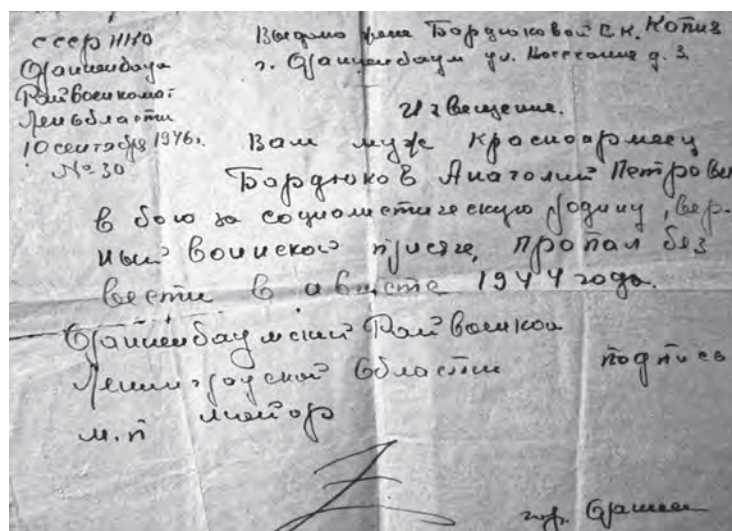 СССР НКО
Ораниенбаум
Райвоенкомат
Лен области
10 сентября 1946г.
№ 30
Выдано жене Бордюковой Е.К. Копия
г. Ораниенбаум ул. д. 3
Извещение.
Вам муж красноармеец
Бордюков Анатолий Петрович
в бою за социалистическую родину, вер-
ный воинской присяге, пропал без
вести в августе 1944 года.
Ораниенбаумский Райвоенком
Ленинградской области подпись
м.п майор